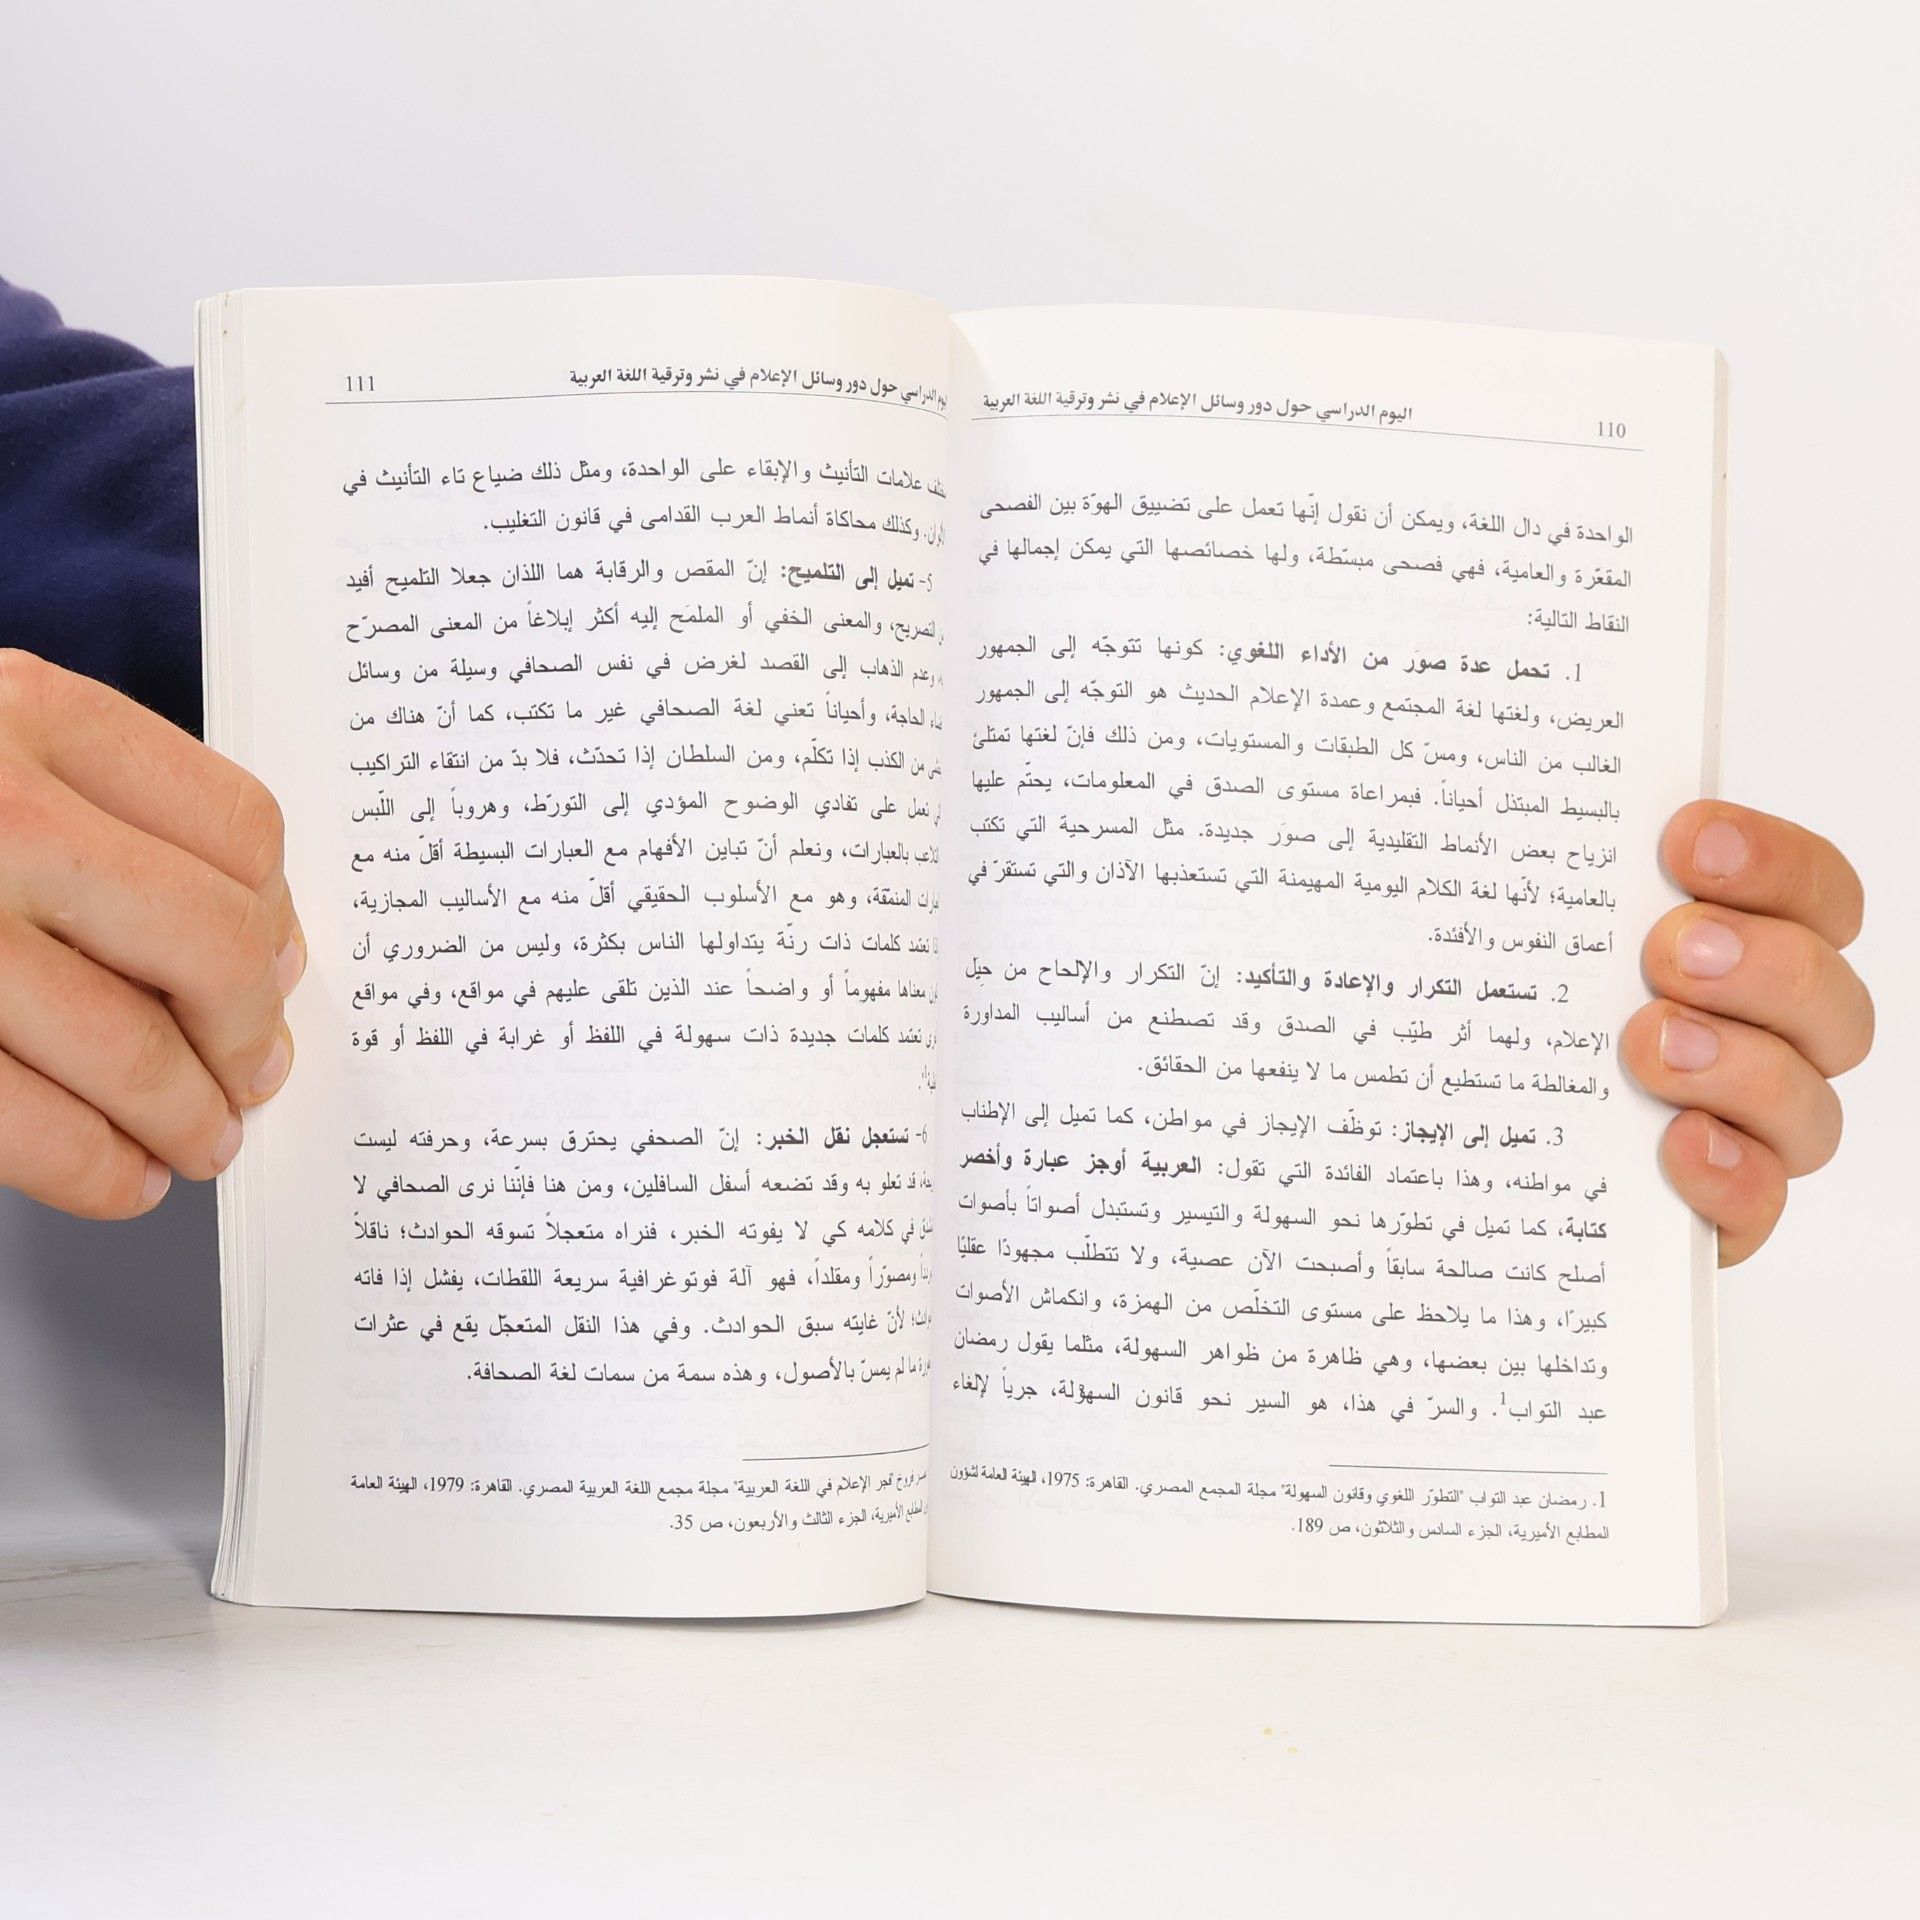 110
اليوم الدراسي حول دور وسائل الإعلام في نشر وترقية اللغة العربية
الواحدة في دال اللغة، ويمكن أن نقول إنّها تعمل على تضييق الهوّة بين الفصحى
المقعّرة والعامية، فهي فصحى مبسّطة، ولها خصائصها التي يمكن إجمالها في
النقاط التالية:
1. تحمل عدة صوَر من الأداء اللغوي: كونها تتوجّه إلى الجمهور
العريض، ولغتها لغة المجتمع وعمدة الإعلام الحديث هو التوجّه إلى الجمهور
الغالب من الناس، ومسّ كل الطبقات والمستويات، ومن ذلك فإنّ لغتها تمتلئ
بالبسيط المبتذل أحياناً. فبمراعاة مستوى الصدق في المعلومات، يحتّم عليها
انزياح بعض الأنماط التقليدية إلى صوَر جديدة. مثل المسرحية التي تكتب
بالعامية؛ لأنّها لغة الكلام اليومية المهيمنة التي تستعذبها الآذان والتي تستقرّ في
أعماق النفوس والأفئدة.
2. تستعمل التكرار والإعادة والتأكيد: إنّ التكرار والإلحاح من حِيل
الإعلام، ولهما أثر طيّب في الصدق وقد تصطنع من أساليب المداورة
والمغالطة ما تستطيع أن تطمس ما لا ينفعها من الحقائق.
3. تميل إلى الإيجاز: توظّف الإيجاز في مواطن، كما تميل إلى الإطناب
في مواطنه، وهذا باعتماد الفائدة التي تقول: العربية أوجز عبارة وأخصر
كتابة، كما تميل في تطوّرها نحو السهولة والتيسير وتستبدل أصواتاً بأصوات
أصلح كانت صالحة سابقاً وأصبحت الآن عصية، ولا تتطلّب مجهودًا عقليًا
كبيرًا، وهذا ما يلاحظ على مستوى التخلّص من الهمزة، وانكماش الأصوات
وتداخلها بين بعضها، وهي ظاهرة من ظواهر السهولة، مثلما يقول رمضان
عبد التواب1. والسرّ في هذا، هو السير نحو قانون السهولة، جرياً لإلغاء
1. رمضان عبد التواب "التطوّر اللغوي وقانون السهولة" مجلة المجمع المصري. القاهرة: 1975، الهيئة العامة لشؤون
المطابع الأميرية، الجزء السادس والثلاثون، ص 189.
الدراسي حول دور وسائل الإعلام في نشر وترقية اللغة العربية
111
علامات التأنيث والإبقاء على الواحدة، ومثل ذلك ضياع تاء التأنيث في
وكذلك محاكاة أنماط العرب القدامى في قانون التغليب.
5- تميل إلى التلميح: إنّ المقص والرقابة هما اللذان جعلا التلميح أفيد
التصريح، والمعنى الخفي أو الملمَح إليه أكثر إبلاغاً من المعنى المصرّح
وعدم الذهاب إلى القصد لغرض في نفس الصحافي وسيلة من وسائل
الحاجة، وأحياناً تعني لغة الصحافي غير ما تكتب، كما أنّ هناك من
من الكذب إذا تكلّم، ومن السلطان إذا تحدّث، فلا بدّ من انتقاء التراكيب
تعمل على تفادي الوضوح المؤدي إلى التورّط، وهروباً إلى اللّبس
بالعبارات، ونعلم أنّ تباين الأفهام مع العبارات البسيطة أقلّ منه مع
المنمّقة، وهو مع الأسلوب الحقيقي أقلّ منه مع الأساليب المجازية،
تعتمد كلمات ذات رنّة يتداولها الناس بكثرة، وليس من الضروري أن
معناها مفهوماً أو واضحاً عند الذين تلقى عليهم في مواقع، وفي مواقع
تعتمد كلمات جديدة ذات سهولة في اللفظ أو غرابة في اللفظ أو قوة
6- تستعجل نقل الخبر: إنّ الصحفي يحترق بسرعة، وحرفته ليست
قد تعلو به وقد تضعه أسفل السافلين، ومن هنا فإنّنا نرى الصحافي لا
في كلامه كي لا يفوته الخبر، فنراه متعجلاً تسوقه الحوادث؛ ناقلاً
ومصوّراً ومقلداً، فهو آلة فوتوغرافية سريعة اللقطات، يفشل إذا فاته
لأنّ غايته سبق الحوادث. وفي هذا النقل المتعجّل يقع في عثرات
ما لم يمسّ بالأصول، وهذه سمة من سمات لغة الصحافة.
فروخ "فجر الإعلام في اللغة العربية" مجلة مجمع اللغة العربية المصري. القاهرة: 1979، الهيئة العامة
المطابع الأميرية، الجزء الثالث والأربعون، ص 35.